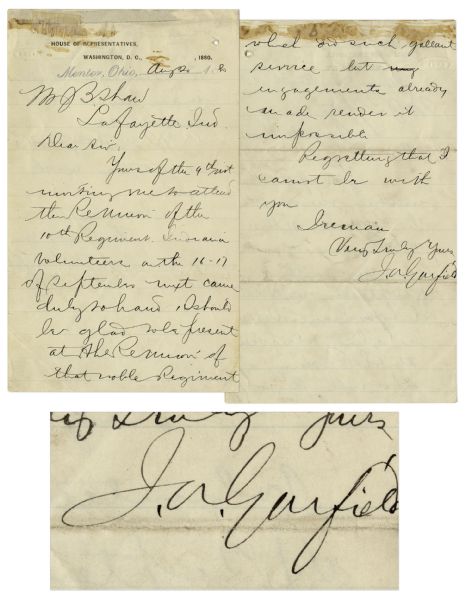 HOUSE OF REPRESENTATIVES,
WASHINGTON, D. C., 1880.
Mentor, Ohio, Aug
Mr J B Shaw
Lafayette Ind
Dear Sir,
Yours of the 9th inst
inviting me to attend
the Reunion of the
10th Regiment Indiana
volunteers on the 16-17
of September next came
duly to hand. I should
be glad to be present
at the Reunion of
that noble Regiment
which did such gallant
service but my
engagements already
made render it
impossible
Regretting that I
cannot be with
you
I remain
Very Truly Yours
J.A. Garfield
Truly Yours
J. A. Garfield